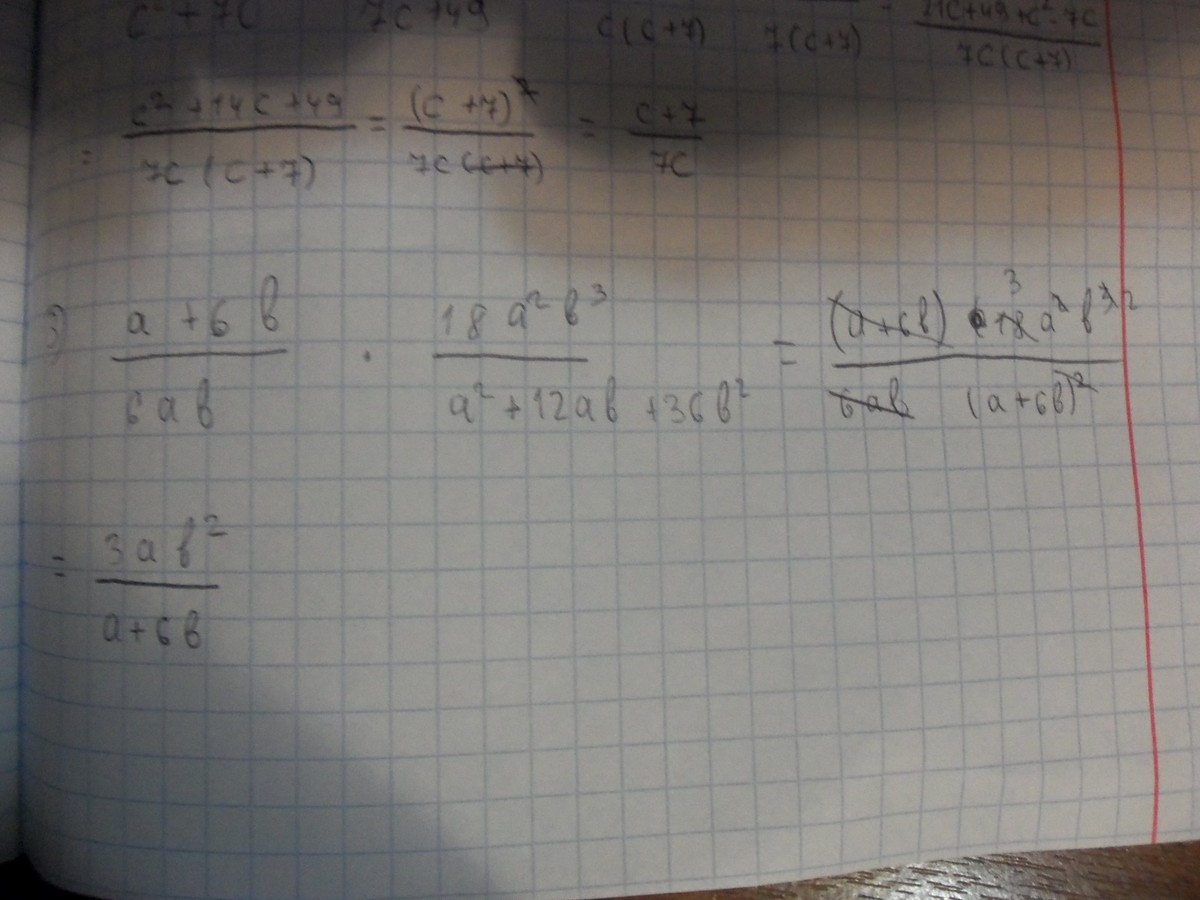 c² + 7c 7c + 49 c(c+7) 7(c+7) 21c+49+c²-7c / 7c(c+7)
= c² + 14c + 49 / 7c(c+7) = (c+7)² / 7c(c+7) = c+7 / 7c
3) a + 6в / 6ав · 18a²в³ / a² + 12ав + 36в² = (a+6в) 18 3 a² в³ 2 / 6ав (a+6в)²
= 3aв² / a+6в